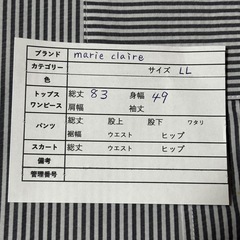 ブランド marie claire
カテゴリー サイズ LL
色
トップス 総丈 83 身幅 49
ワンピース 肩幅 袖丈
パンツ 総丈 股上 股下 ワタリ
裾幅 ウエスト ヒップ
スカート 総丈 ウエスト ヒップ
備考
管理番号